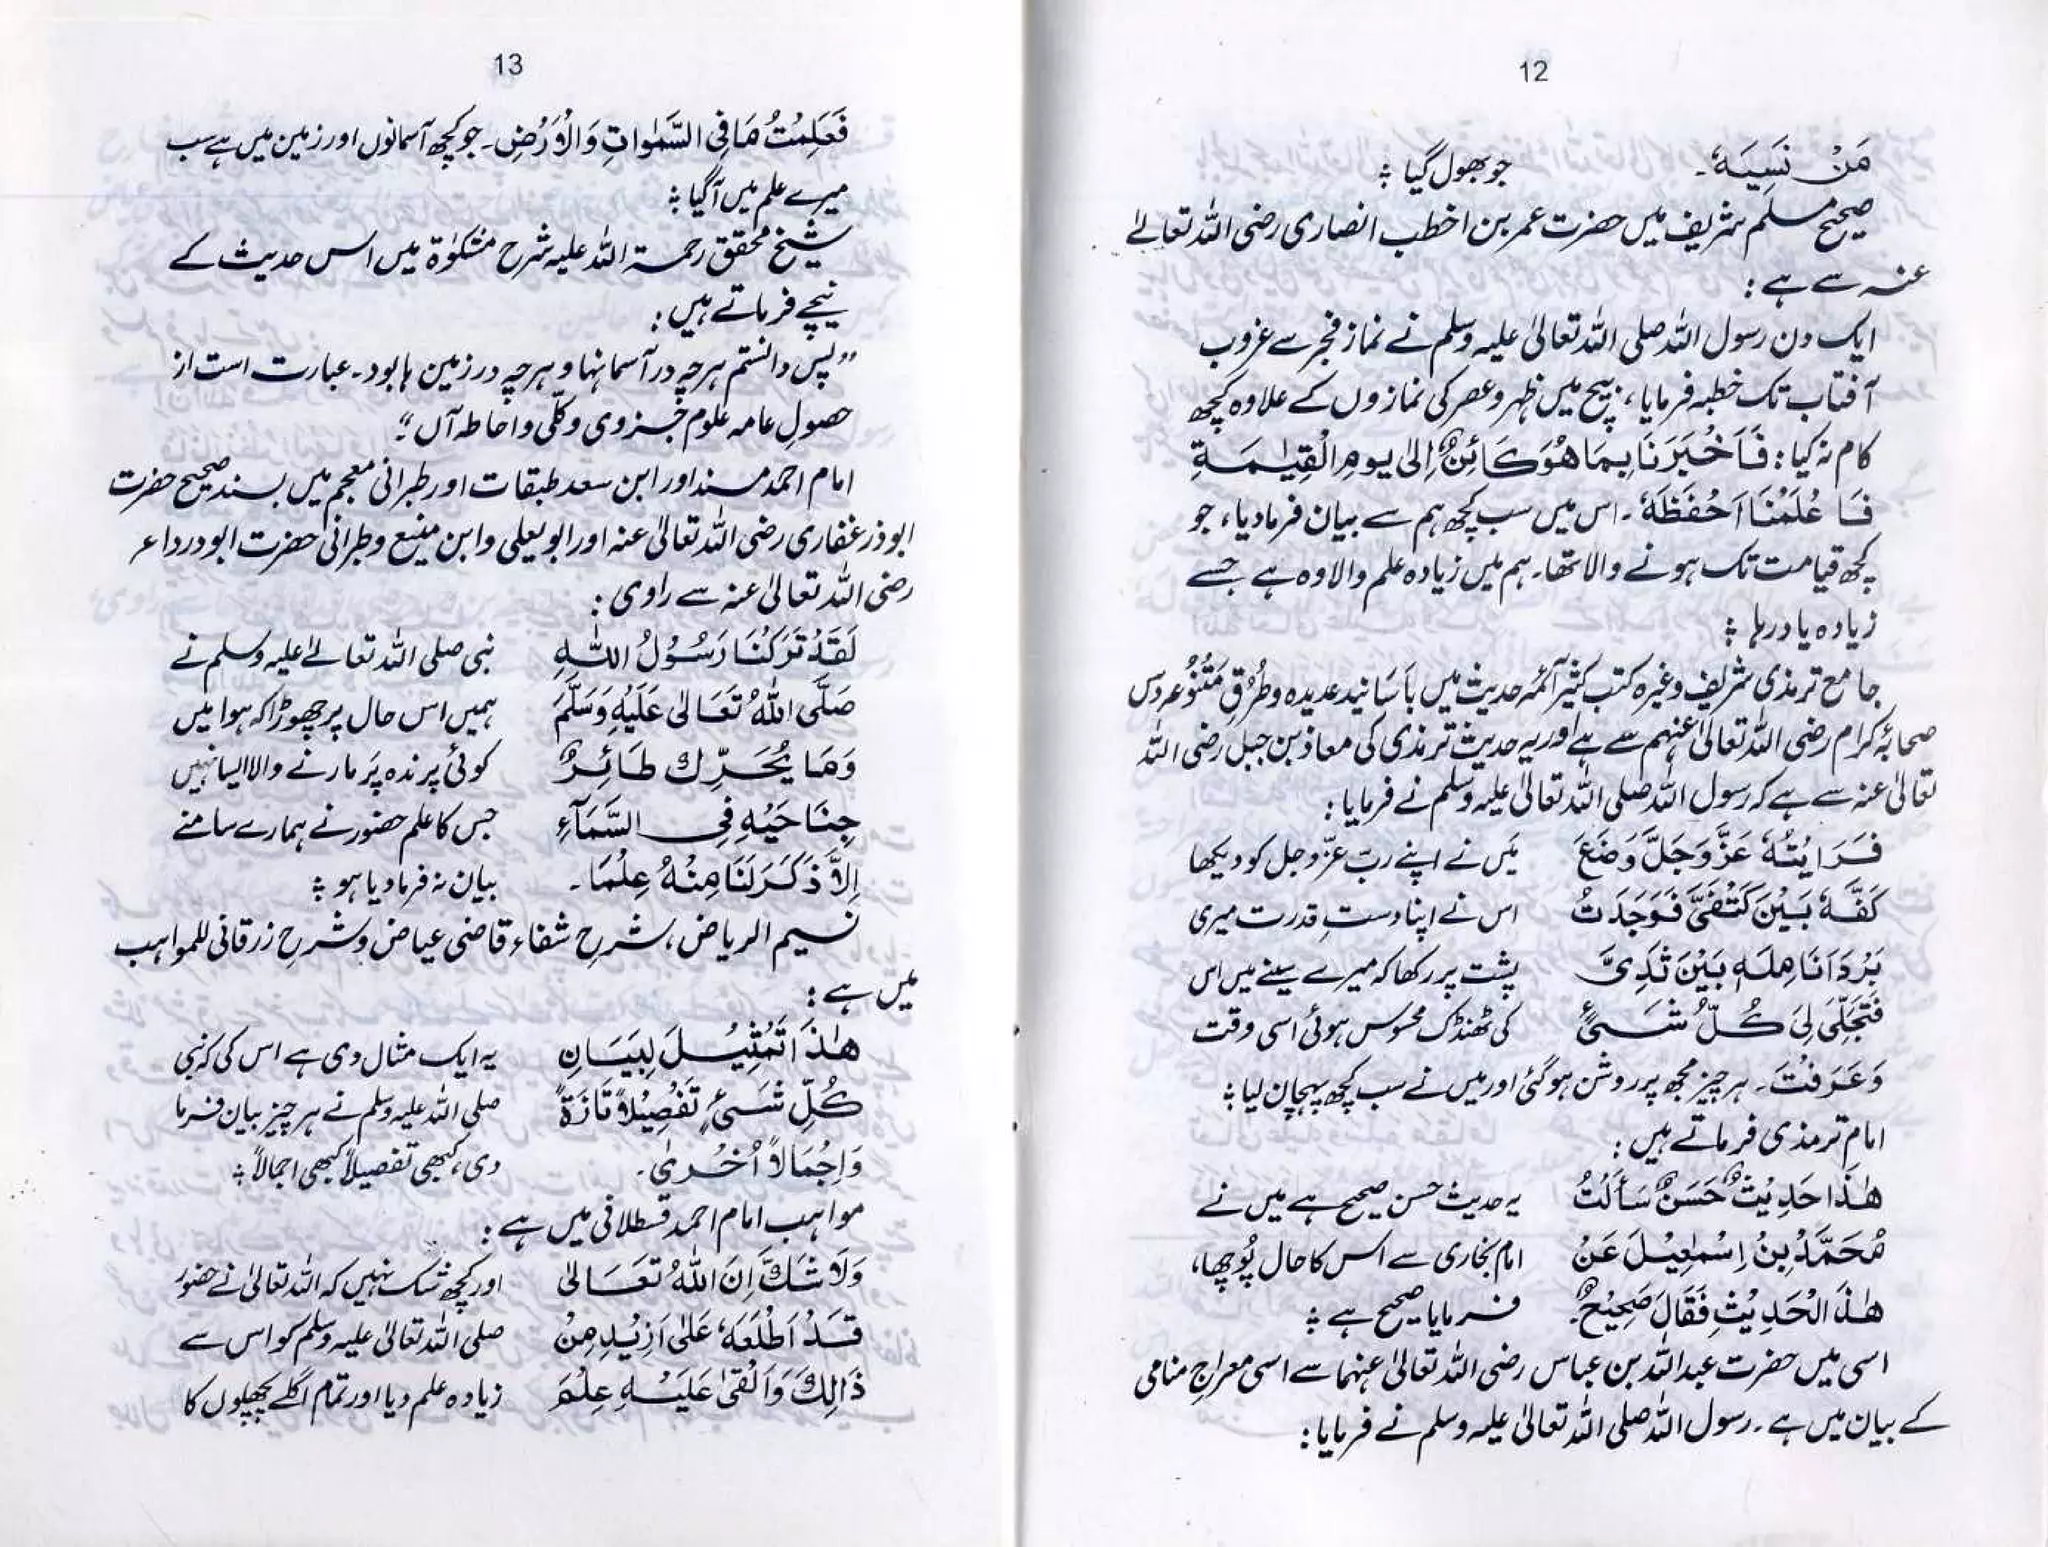 12
مَنْ نَسِیَهٗ۔ جو بھول گیا ؛
صحیح مسلم شریف میں حضرت عمر بن اخطب انصاری رضی اللہ تعالےٰ
عنہ سے ہے :
ایک دن رسول اللہ صلی اللہ تعالیٰ علیہ وسلم نے نماز فجر سے غروب
آفتاب تک خطبہ فرمایا، بیچ میں ظہر و عصر کی نمازوں کے علاوہ کچھ
کام نہ کیا : فَاَخْبَرَنَا بِمَا هُوَ كَائِنٌ اِلیٰ یومِ الْقِیٰمَةِ
فَاَعْلَمُنَا اَحْفَظُهٗ۔ اس میں سب کچھ ہم سے بیان فرمادیا، جو
کچھ قیامت تک ہونے والا تھا۔ ہم میں زیادہ علم والا وہ ہے جسے
زیادہ یاد رہا ؛
جامع ترمذی شریف وغیرہ کتب کثیر آئمہ حدیث میں باَسَانید عدیدہ و طُرُقِ مُتَنَوِّعہ دس
صحابۂ کرام رضی اللہ تعالیٰ عنہم سے ہے اور یہ حدیث ترمذی کی معاذ بن جبل رضی اللہ
تعالیٰ عنہ سے ہے کہ رسول اللہ صلی اللہ تعالیٰ علیہ وسلم نے فرمایا :
فَرَاَیْتُهٗ عَزَّوَجَلَّ وَضَعَ میَں نے اپنے ربّ عزّوجل کو دیکھا
كَفَّهٗ بَیْنَ كَتْفَیَّ فَوَجَدَتُ اس نے اپنا دستِ قدرت میری
بَرْدَ اَنَامِلِهٖ بَیْنَ ثَدِیَّ پشت پر رکھا کہ میرے سینے میں اس
فَتَجَلّٰی لِیْ كُلُّ شَیْءٍ کی ٹھنڈک محسوس ہوئی اسی وقت
وَعَرَفْتَ۔ ہر چیز مجھ پر روشن ہوگئی اور میں نے سب کچھ پہچان لیا ؛
امام ترمذی فرماتے ہیں :
هٰذَا حَدِیْثٌ حَسَنٌ سَأَلْتُ یہ حدیث حسن صحیح ہے میں نے
مُحَمَّدُ بِنُ اِسْمٰعِیْلَ عَنْ امام بخاری سے اس کا حال پُوچھا،
هٰذَ الْحَدِیْثِ فَقَالَ صَحِیْحٌ۔ فرمایا صحیح ہے ؛
اسی میں حضرت عبداللہ بن عباس رضی اللہ تعالیٰ عنہما سے اسی معراجِ منامی
کے بیان میں ہے۔ رسول اللہ صلی اللہ تعالیٰ علیہ وسلم نے فرمایا :
13
فَعَلِمْتُ مَا فِی السَّمٰوٰاتِ وَالْاَرْضِ۔ جو کچھ آسمانوں اور زمین میں ہے سب
میرے علم میں آگیا ؛
شیخ محقق رحمۃ اللہ علیہ شرح مشکوٰۃ میں اس حدیث کے
نیچے فرماتے ہیں :
”پس دانستم ہرچہ در آسمانہا و ہرچہ در زمین ہا بود۔ عبارت است از
حصولِ عامہ علوم جزوی و کلّی و احاطہ آں“
امام احمد مسند اور ابن سعد طبقات اور طبرانی معجم میں بسند صحیح حضرت
ابوذر غفاری رضی اللہ تعالیٰ عنہ اور ابویعلی و ابن منیع و طبرانی حضرت ابودرداء
رضی اللہ تعالیٰ عنہ سے راوی :
لَقَدْ تَرَكْنَا رَسُوْلُ اللّٰهِ نبی صلی اللہ تعالےٰ علیہ وسلم نے
صَلَّی اللّٰهُ تَعَالیٰ عَلَیْهِ وَسَلَّمَ ہمیں اس حال پر چھوڑا کہ ہوا میں
وَمَا یُحَرِّكُ طَائِرٌ کوئی پرندہ پَر مارنے والا ایسا نہیں
جِنَاحَیْهِ فِی السَّمَآءِ جس کا علم حضور نے ہمارے سامنے
اِلَّا ذَكَرَ لَنَا مِنْهُ عِلْمًا۔ بیان نہ فرمادیا ہو ؛
نسیم الریاض، شرحِ شفاء قاضی عیاض و شرحِ زرقانی للمواہب
میں ہے :
هٰذَا تَمْثِیْلَ لِبَیَانِ یہ ایک مثال دی ہے اس کی کہ نبی
كُلِّ شَیْءٍ تَفْصِیْلًا تَارَةً صلی اللہ علیہ وسلم نے ہر چیز بیان فرما
وَاِجْمَالًا اُخْرٰی۔ دی، کبھی تفصیلاً کبھی اجمالاً ؛
مواہب امام احمد قسطلانی میں ہے :
وَلَا شَكَّ اِنَ اللّٰهُ تَعَالیٰ اور کچھ شک نہیں کہ اللہ تعالیٰ نے حضور
قَدْ اَطْلَعَهٗ عَلیٰ اَزِیْدِ مِنْ صلی اللہ تعالیٰ علیہ وسلم کو اس سے
ذَالِكَ وَاَلْقیٰ عَلَیْهِ عِلْمَ زیادہ علم دیا اور تمام اگلے پچھلوں کا